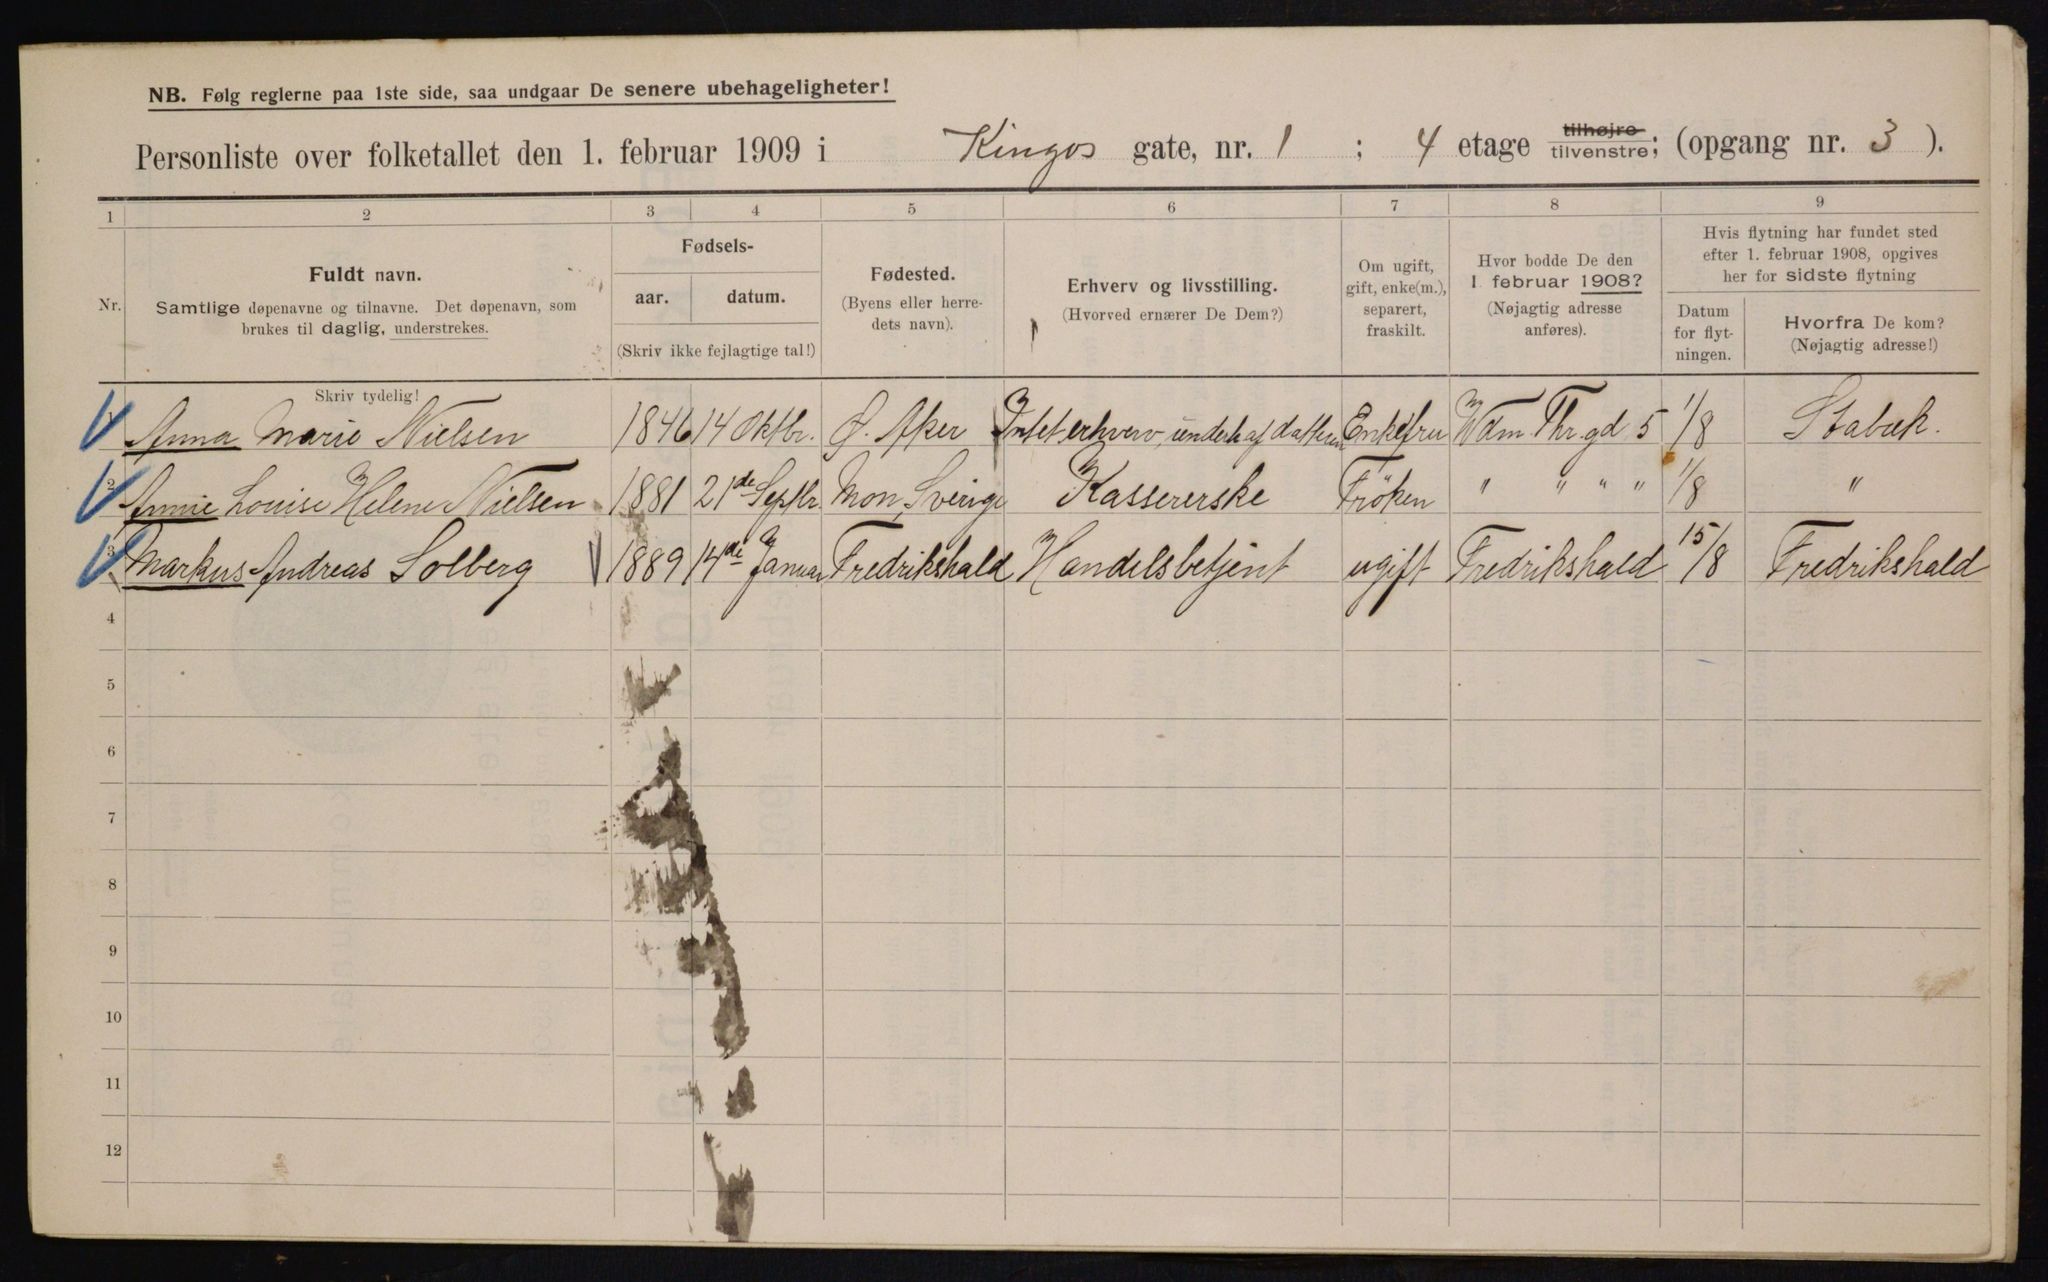 NB. Følg reglerne paa 1ste side, saa undgaar De senere ubehageligheter!
Personliste over folketallet den 1. februar 1909 i Kingos gate, nr. 1 ; 4 etage tilhøjre tilvenstre; (opgang nr. 3 ).
1 2 3 4 5 6 7 8 9
Nr.
Fuldt navn.
Samtlige døpenavne og tilnavne. Det døpenavn, som
brukes til daglig, understrekes.
Fødsels-
aar. datum.
(Skriv ikke fejlagtige tal!)
Fødested.
(Byens eller herre-
dets navn).
Erhverv og livsstilling.
(Hvorved ernærer De Dem?)
Om ugift,
gift, enke(m.),
separert,
fraskilt.
Hvor bodde De den
1. februar 1908?
(Nøjagtig adresse
anføres).
Hvis flytning har fundet sted
efter 1. februar 1908, opgives
her for sidste flytning
Datum
for flyt-
ningen.
Hvorfra De kom?
(Nøjagtig adresse!)
Skriv tydelig!
1 Anna Marie Nielsen 1846 14 Oktbr. Ø. Aker Intet erhverv, underh af datteren Enkefru Wdm Thr. gd 5 1/8 Stabæk.
2 Annie Louise Helene Nielsen 1881 21de Septbr. Mon, Sverige Kassererske Fröken " " " " 1/8 "
3 Markus Andreas Solberg 1889 14de Januar Fredrikshald Handelsbetjent ugift Fredrikshald 15/8 Fredrikshald
4
5
6
7
8
9
10
11
12